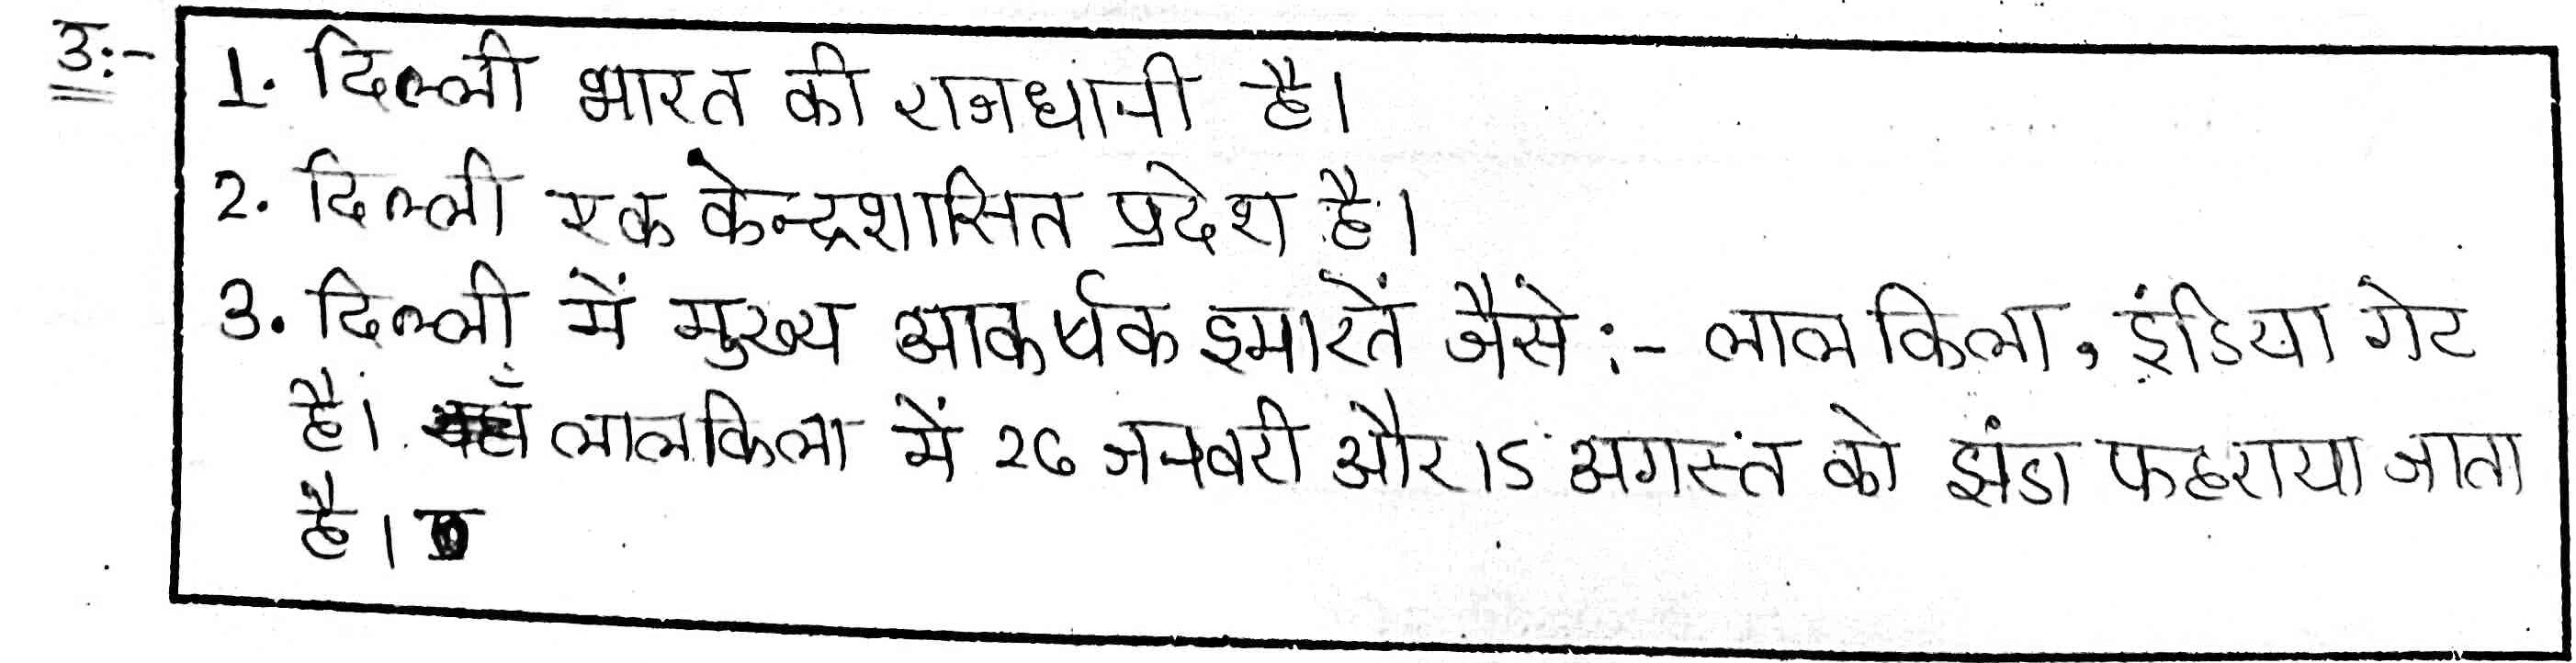 उ:- 1. दिल्ली भारत की राजधानी है।
2. दिल्ली एक केन्द्रशासित प्रदेश है।
3. दिल्ली में मुख्य आकर्षक इमारतें जैसे:- लाल किला, इंडिया गेट
है। लालकिला में 26 जनवरी और 15 अगस्त को झंडा फहराया जाता
है।